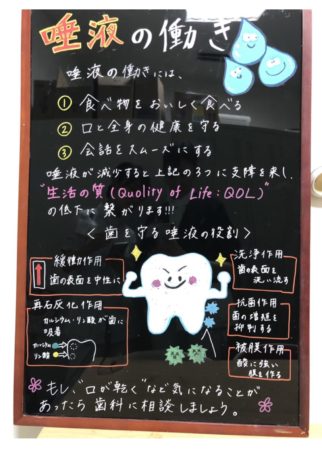 唾液の働き
唾液の働きには、
① 食べ物をおいしく食べる
② 口と全身の健康を守る
③ 会話をスムーズにする
唾液が減少すると上記の3つに支障を来し、
"生活の質(Quality of Life:QOL)"
の低下に繋がります!!!
<歯を守る唾液の役割>
緩衝作用
歯の表面を中性に
再石灰化作用
カルシウム・リン酸が歯に
吸着
カルシウム
リン酸
洗浄作用
歯の表面を
洗い流す
抗菌作用
菌の増殖を
抑制する
被膜作用
酸に強い
膜を作る
もし、"口が乾く"など気になることが
あったら歯科に相談しましょう。